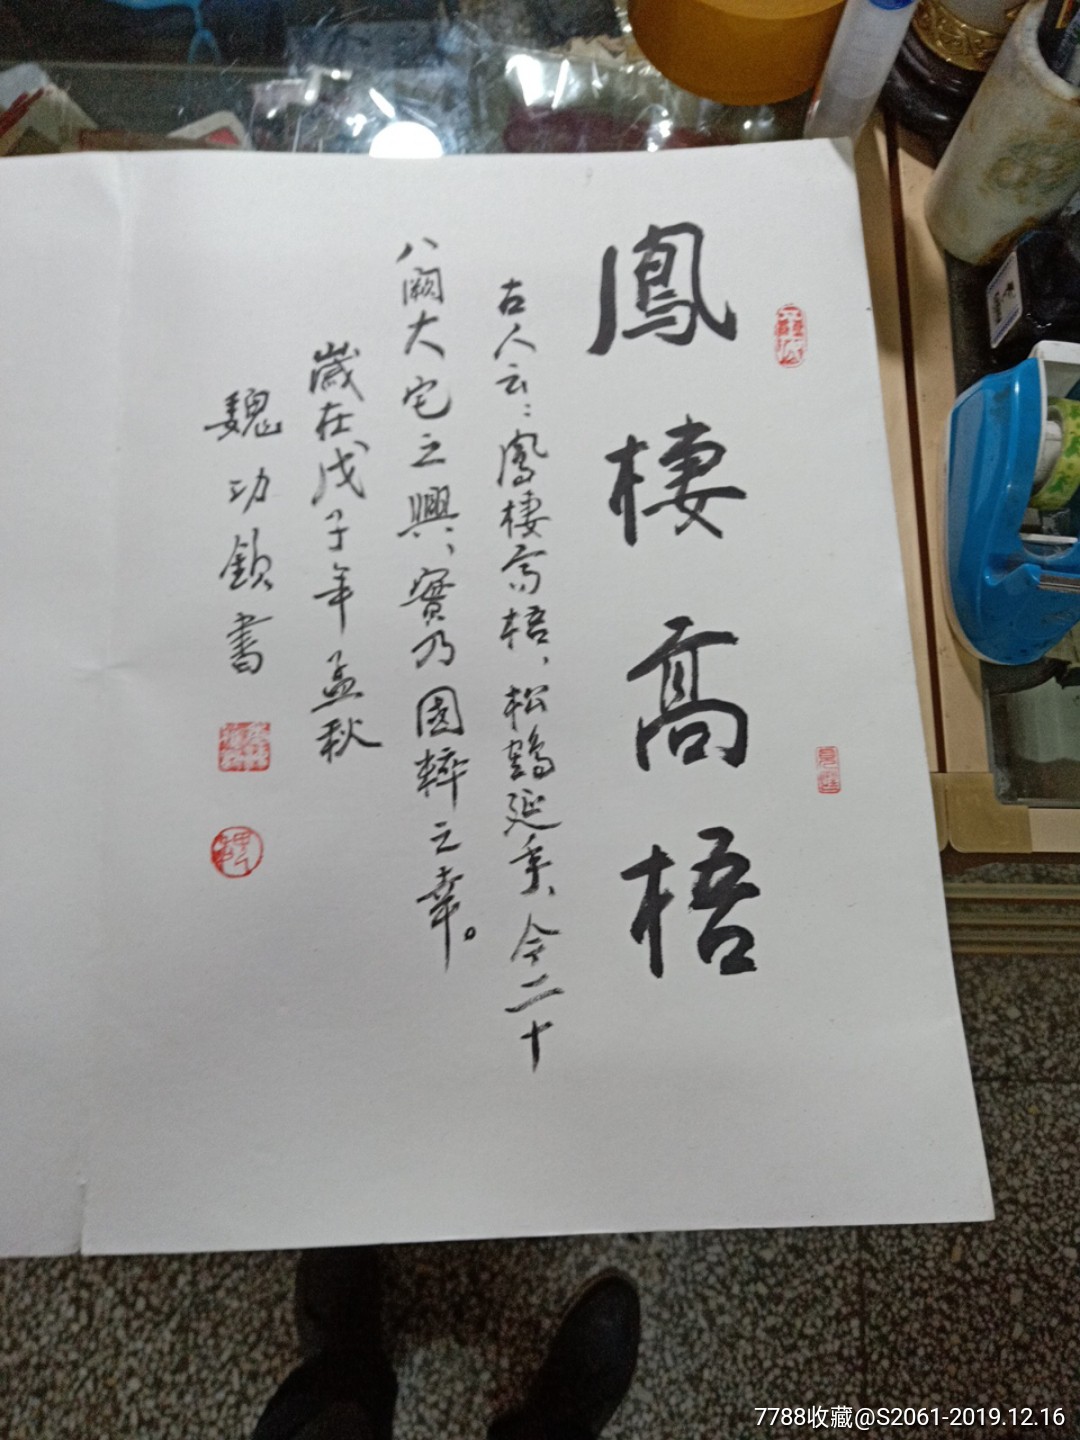 鳳棲高梧
古人云：鳳棲高梧、松鶴延年、今二十
八闕大宅之興；實乃國粹之幸。
歲在戊子年孟秋
魏功鎖書
7788收藏@S2061-2019.12.16